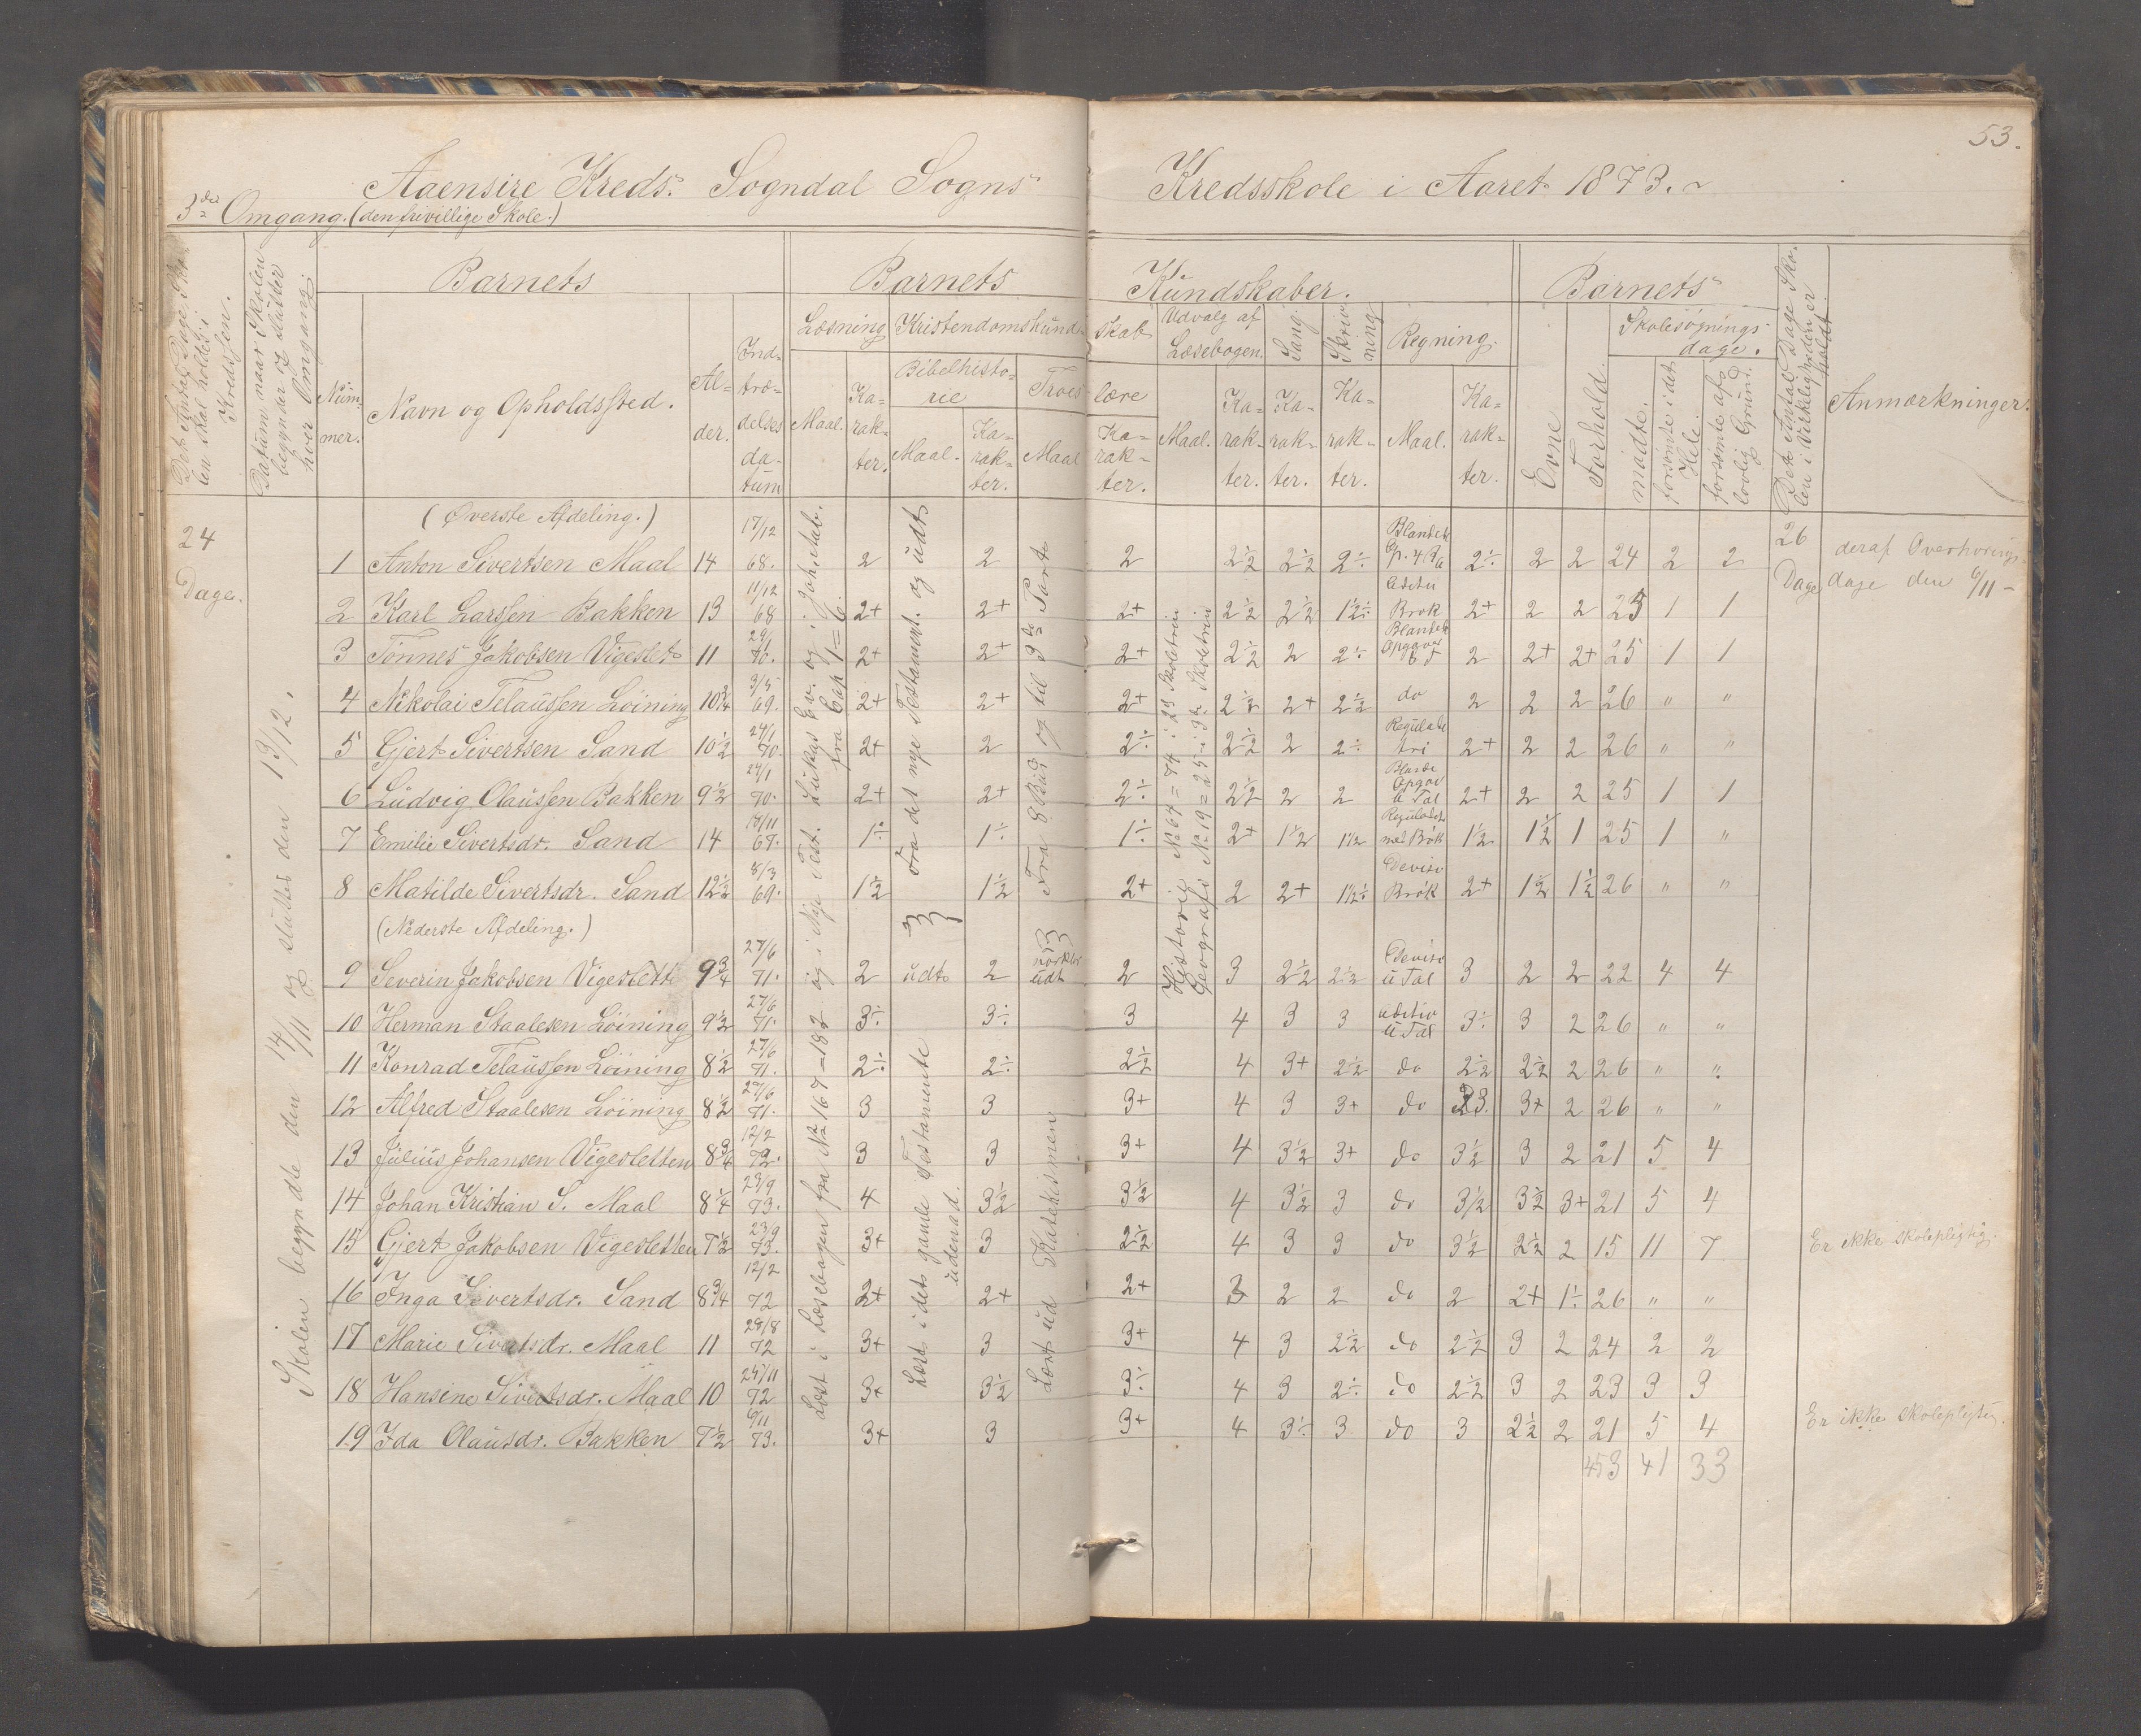 53.
Aaensire Kreds. Sogndal Sogns Kredsskole i Aaret 1873.
3die Omgang. (den frivillige Skole.)
Det Antal Dage Skolen skal holdes i Kredsen.
Datum naar Skolen begynder og slutter hver Omgang.
Barnets
Nummer.
Navn og Opholdssted.
Alder.
Indtrædelsesdatum
Barnets Kundskaber.
Læsning
Maal.
Karakter.
Kristendomskundskab
Bibelhistorie
Maal.
Karakter.
Troeslære
Maal
Karakter.
Udvalg af Læsebogen.
Maal.
Karakter.
Sang.
Karakter.
Skrivning
Karakter.
Regning.
Maal.
Karakter.
Barnets
Evne
Forhold.
Skolesøgningsdage.
mødte.
forsømte i det Hele.
forsømte af lovlig Grund.
Det Antal Dage Skolen i Virkeligheden er holdt
Anmærkninger.
24 Dage.
Skolen begynde den 14/11 og sluttes den 13/12.
(Øverste Afdeling.)
1 Anton Sivertsen Maal 14 17/12 68. 2 2 2 2½ 2½ 2÷ Blandede Op. 2÷ 2 2 24 2 2
26 Dage
deraf Overhørings
dage den 6/11 –
2 Karl Larssen Bakken 13 11/12 68 2+ 2+ 2+ 2½ 2½ 1½÷ Brøk 2+ 2 2 25 1 1
3 Tønnes Jakobsen Vigeslet 11 24/1 70. 2+ 2+ 2+ 2½ 2 2÷ Blandede Opgaver 2 2+ 2+ 25 1 1
4 Nikolai Telaussen Löining 10¾ 3/5 69. 2+ 2+ 2+ 2½ 2+ 2½ do 2 2 2 26 " "
5 Gjert Sivertsen Sand 10½ 24/1 70 2+ 2 2÷ 2½ 2 2÷ Reguladetri 2+ 2 2 26 " "
6 Ludvig Olaussen Bakken 9½ 24/1 70. 2+ 2+ 2÷ 2½ 2 2 Blande Opgav u Tal 2+ 2 2 25 1 1
7 Emilie Sivertsdr. Sand 14 18/11 67. 1÷ 1÷ 1÷ 2+ 1½ 1½ Reguladet med Brøk 1½ 1½ 1 25 1 "
8 Matilde Sivertsdr. Sand 12½ 8/3 69. 1½ 1½ 2+ 2 2+ 1½÷ Devisi Brøk 2+ 1½ 1½ 26 " "
(Nederste Afdeling.)
9 Severin Jakobsen Vigeslett 9¾ 27/6 71. 2 udt 2 udt 2 3 2½ 2½ Devisi u Tal 3 2 2 22 4 4
10 Herman Staalesen Löining 9½ 27/6 71. 3÷ 3÷ 3 4 3 3 aditiv u Tal 3÷ 3 2 26 " "
11 Konrad Telaussen Löining 8½ 27/6 71. 2÷ 2÷ 2½ 4 3+ 2½ do 2½ 2½ 2 26 " "
12 Alfred Staalesen Löining 8½ 27/6 71. 3 3 3+ 4 3 3+ do 3. 3+ 2 26 " "
13 Julius Johansen Vigesletten 8¾ 12/2 72. 3 3 3+ 4 3½ 3+ do 3½ 3 2 21 5 4
14 Johan Kristian S. Maal 8¼ 29/9 73. 4 3½ 3½ 4 3½ 3 do 3½ 3½ 3+ 21 5 4
15 Gjert Jakobsen Vigesletten 7½ 23/9 73. 3+ 3 2½ 4 3 3 do 3½ 2½ 2 15 11 7 Er ikke skolepligtig.
16 Inga Sivertsdr. Sand 8¾ 12/2 72 2+ 2+ 2+ 3 2 2 do 2 2+ 1÷ 26 " "
17 Marie Sivertsdr. Maal 11 28/8 72 3+ 3 3+ 4 3 2½ do 2½ 3 2 24 2 2
18 Hansine Sivertsdr. Maal 10 25/11 72 3+ 3½ 3÷ 4 3 2÷ do 2½ 3 2 23 3 3
19 Ida Olausdr. Bakken 7½ 6/11 73. 3+ 3 3+ 4 3÷ 3 do 3 2½ 2 21 5 4 Er ikke skolepligtig.
453 41 33
Læst i Læsebogen fra No 167–182 og i Nye Test. Lukas Ev. og i Joh. Aab.
fra Cap 1–6.
Fra det nye Testament. og udt
Lært i det gamle Testamente
udenad.
Fra 8 Bud og til 3die Part
Lært ud Katekismen
Historie No 64–74 i 2det Skoletrin
Geografi No 19–25 i 3die Skoletrin